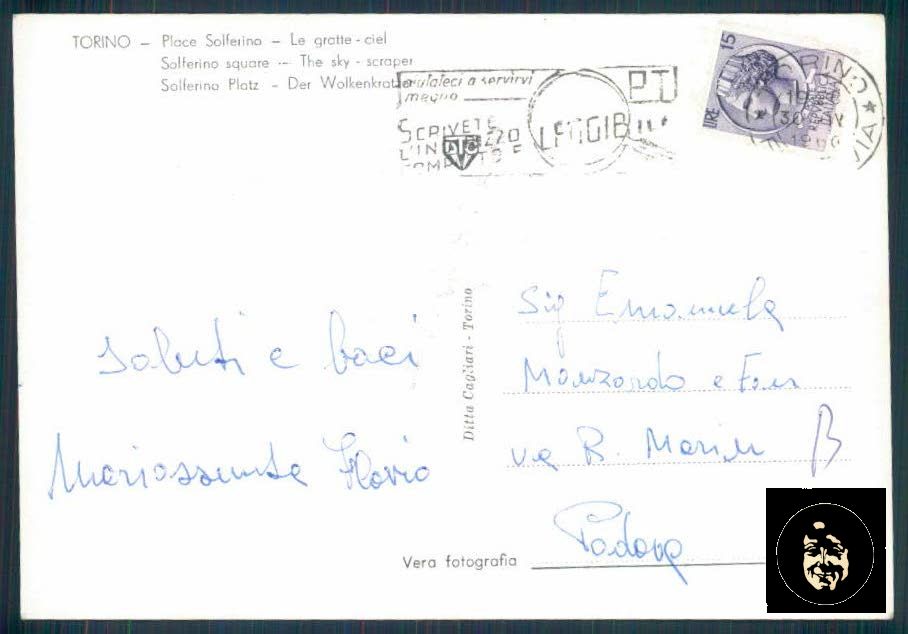 TORINO — Place Solferino — Le gratte-ciel
Solferino square — The sky-scraper
Solferino Platz — Der Wolkenkratzer
aiutateci a servirvi
meglio
PT
SCRIVETE
L'INDIRIZZO
COMPLETO E
LEGGIBILE
LIRE 15
Saluti e baci
Mariassunta Flavio
Ditta Cagliari - Torino
Sig Emanuela
Manzardo e Fam
via B.
B
Padova
Vera fotografia